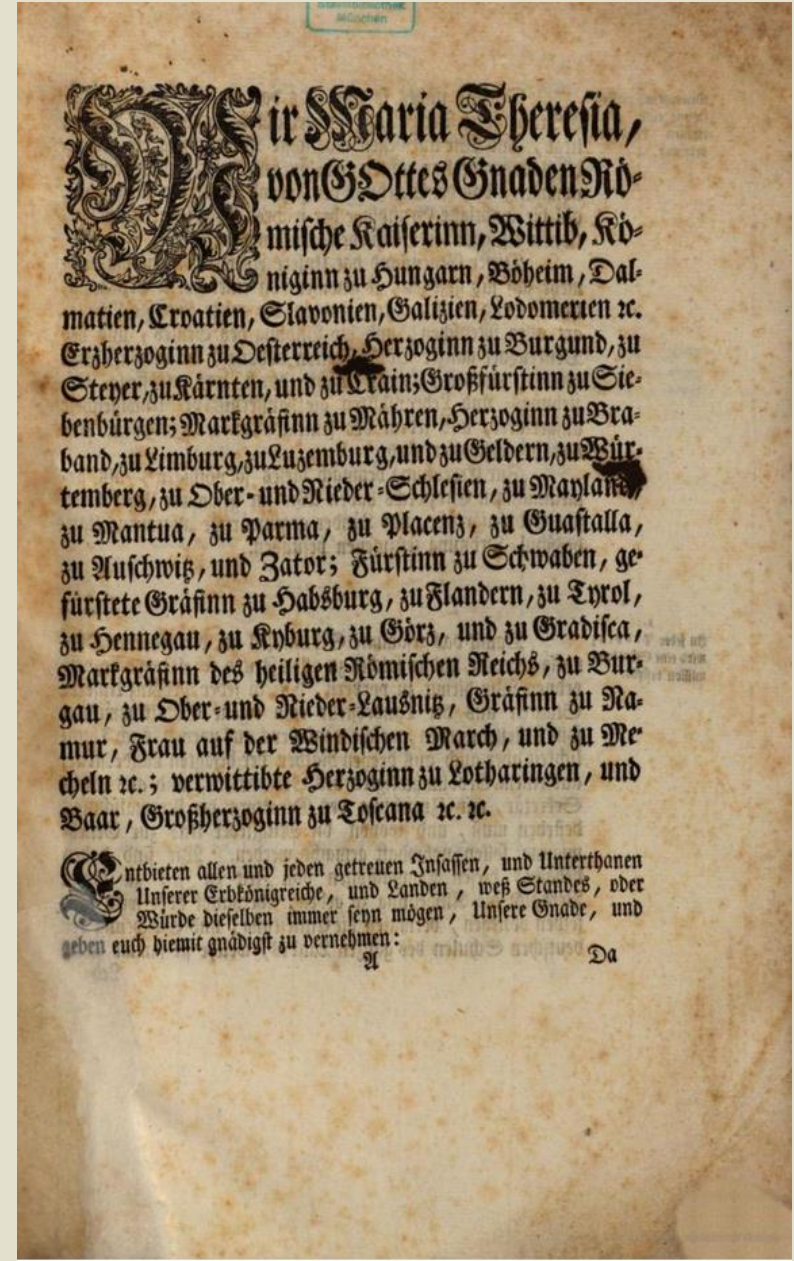 Staatsbibliothek
München
Wir Maria Theresia,
von GOttes Gnaden Rö-
mische Kaiserinn, Wittib, Kö-
niginn zu Hungarn, Böheim, Dal-
matien, Croatien, Slavonien, Galizien, Lodomerien ꝛc.
Erzherzoginn zu Oesterreich, Herzoginn zu Burgund, zu
Steyer, zu Kärnten, und zu Crain; Großfürstinn zu Sie-
benbürgen; Markgräfinn zu Mähren, Herzoginn zu Bra-
band, zu Limburg, zu Luzemburg, und zu Geldern, zu Wür-
temberg, zu Ober- und Nieder-Schlesien, zu Mayland,
zu Mantua, zu Parma, zu Placenz, zu Guastalla,
zu Auschwitz, und Zator; Fürstinn zu Schwaben, ge-
fürstete Gräfinn zu Habsburg, zu Flandern, zu Tyrol,
zu Hennegau, zu Kyburg, zu Görz, und zu Gradisca,
Markgräfinn des heiligen Römischen Reichs, zu Bur-
gau, zu Ober- und Nieder-Lausnitz, Gräfinn zu Na-
mur, Frau auf der Windischen March, und zu Me-
cheln ꝛc.; verwittibte Herzoginn zu Lotharingen, und
Baar, Großherzoginn zu Toscana ꝛc. ꝛc.
Entbieten allen und jeden getreuen Insassen, und Unterthanen
Unserer Erbkönigreiche, und Landen, weß Standes, oder
Würde dieselben immer seyn mögen, Unsere Gnade, und
geben euch hiemit gnädigst zu vernehmen:
A Da